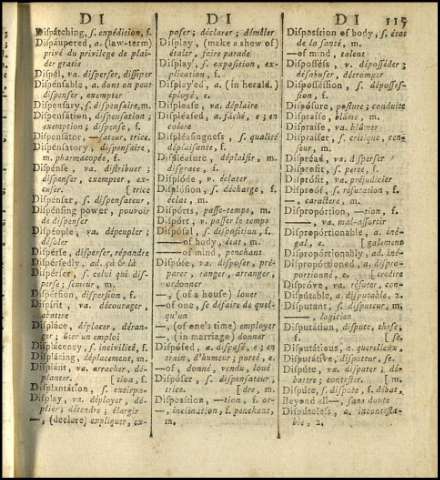 D I
Dispatching, s. expédition, f.
Dispaupered, a. (law-term)
privé du privilege de plai-
der gratis
Dispel, va. disperser, dissiper
Dispensable, a. dont on peut
dispenser, exempter
Dispensary, s. dispensaire, m.
Dispensation, dispensation;
exemption; dispense, f.
Dispensator, —sateur, trice.
Dispensatory, dispensaire,
m. pharmacopée, f.
Dispense, va. distribuer;
dispenser, exempter, ex-
cuser. [trice
Dispenser, s. dispensateur,
Dispensing power, pouvoir
de dispenser
Dispeople, va. dépeupler;
désoler
Disperse, disperser, répandre
Dispersedly, ad. çà & là
Disperser, s. celui qui dis-
perse; semeur, m.
Dispersion, dispersion, f.
Dispirit, va. décourager,
abattre
Displace, déplacer, déran-
ger; ôter un emploi
Displacency, s. incivilité, f.
Displacing, déplacement, m.
Displant, va. arracher, dé-
planter. [tion, f.
Displantation, s. extirpa-
Display, va. déployer, dé-
plier; étendre; élargir
—, (declare) expliquer, ex-
D I
poser; déclarer; démêler
Display, (make a show of)
étaler, faire parade
Display, s. exposition, ex-
plication, f.
Displayed, a. (in herald.)
éployé, e.
Displease, va. déplaire
Displeased, a. fâché, e; en
colere
Displeasingness, s. qualité
déplaisante, f.
Displeasure, déplaisir, m.
disgrace, f.
Displode, v. éclater
Displosion, s. décharge, f.
éclat, m.
Disports, passe-tems, m.
Disport, v. passer le temps
Disposal, s. disposition, f.
—— of body, état, m.
—— of mind, penchant
Dispose, va. disposer, pré-
parer, ranger, arranger,
ordonner
—, (of a house) louer
—of one, se defaire de quel-
qu'un
—, (of one's time) employer
—, (in marriage) donner
Disposed, a. disposé, e; en
train, d'humeur; porté, e.
—of, donné, vendu, loué
Disposer, s. dispensateur,
trice. [dre, m.
Disposition, —tion, f. or-
—, inclination, f. penchant,
m.
D I 115
Disposition of body, s. état
de la santé, m.
—of mind, talent
Dispossess, v. déposséder;
désabuser, détromper
Dispossession, s. dépossess-
ion, f.
Disposure, posture; conduite
Dispraise, blâme, m.
Dispraise, va. blâmer
Dispraiser, s. critique, cen-
seur, m.
Dispread, va. disperser
Disprofit, s. perte, f.
Disprofit, va. préjudicier
Disproof, s. réfutation, f.
—, caractere, m.
Disproportion, —tion, f.
—, va. mal-assortir
Disproportionable, a. iné-
gal, e. [galement
Disproportionably, ad. iné-
Disproportioned, a. dispro-
Disprove, va. réfuter, con-
Disputable, a. disputable, 2.
Disputant, s. disputeur, m.
—, logicien
Disputation, dispute, these,
f.
Disputatious, a. querelleur
Disputative, disputeur, se.
Dispute, va. disputer; dé-
battre; contester. [m.
Dispute, s. dispute, f. débat,
Beyond all—, sans doute
Disputeless, a. incontesta-
ble, 2.